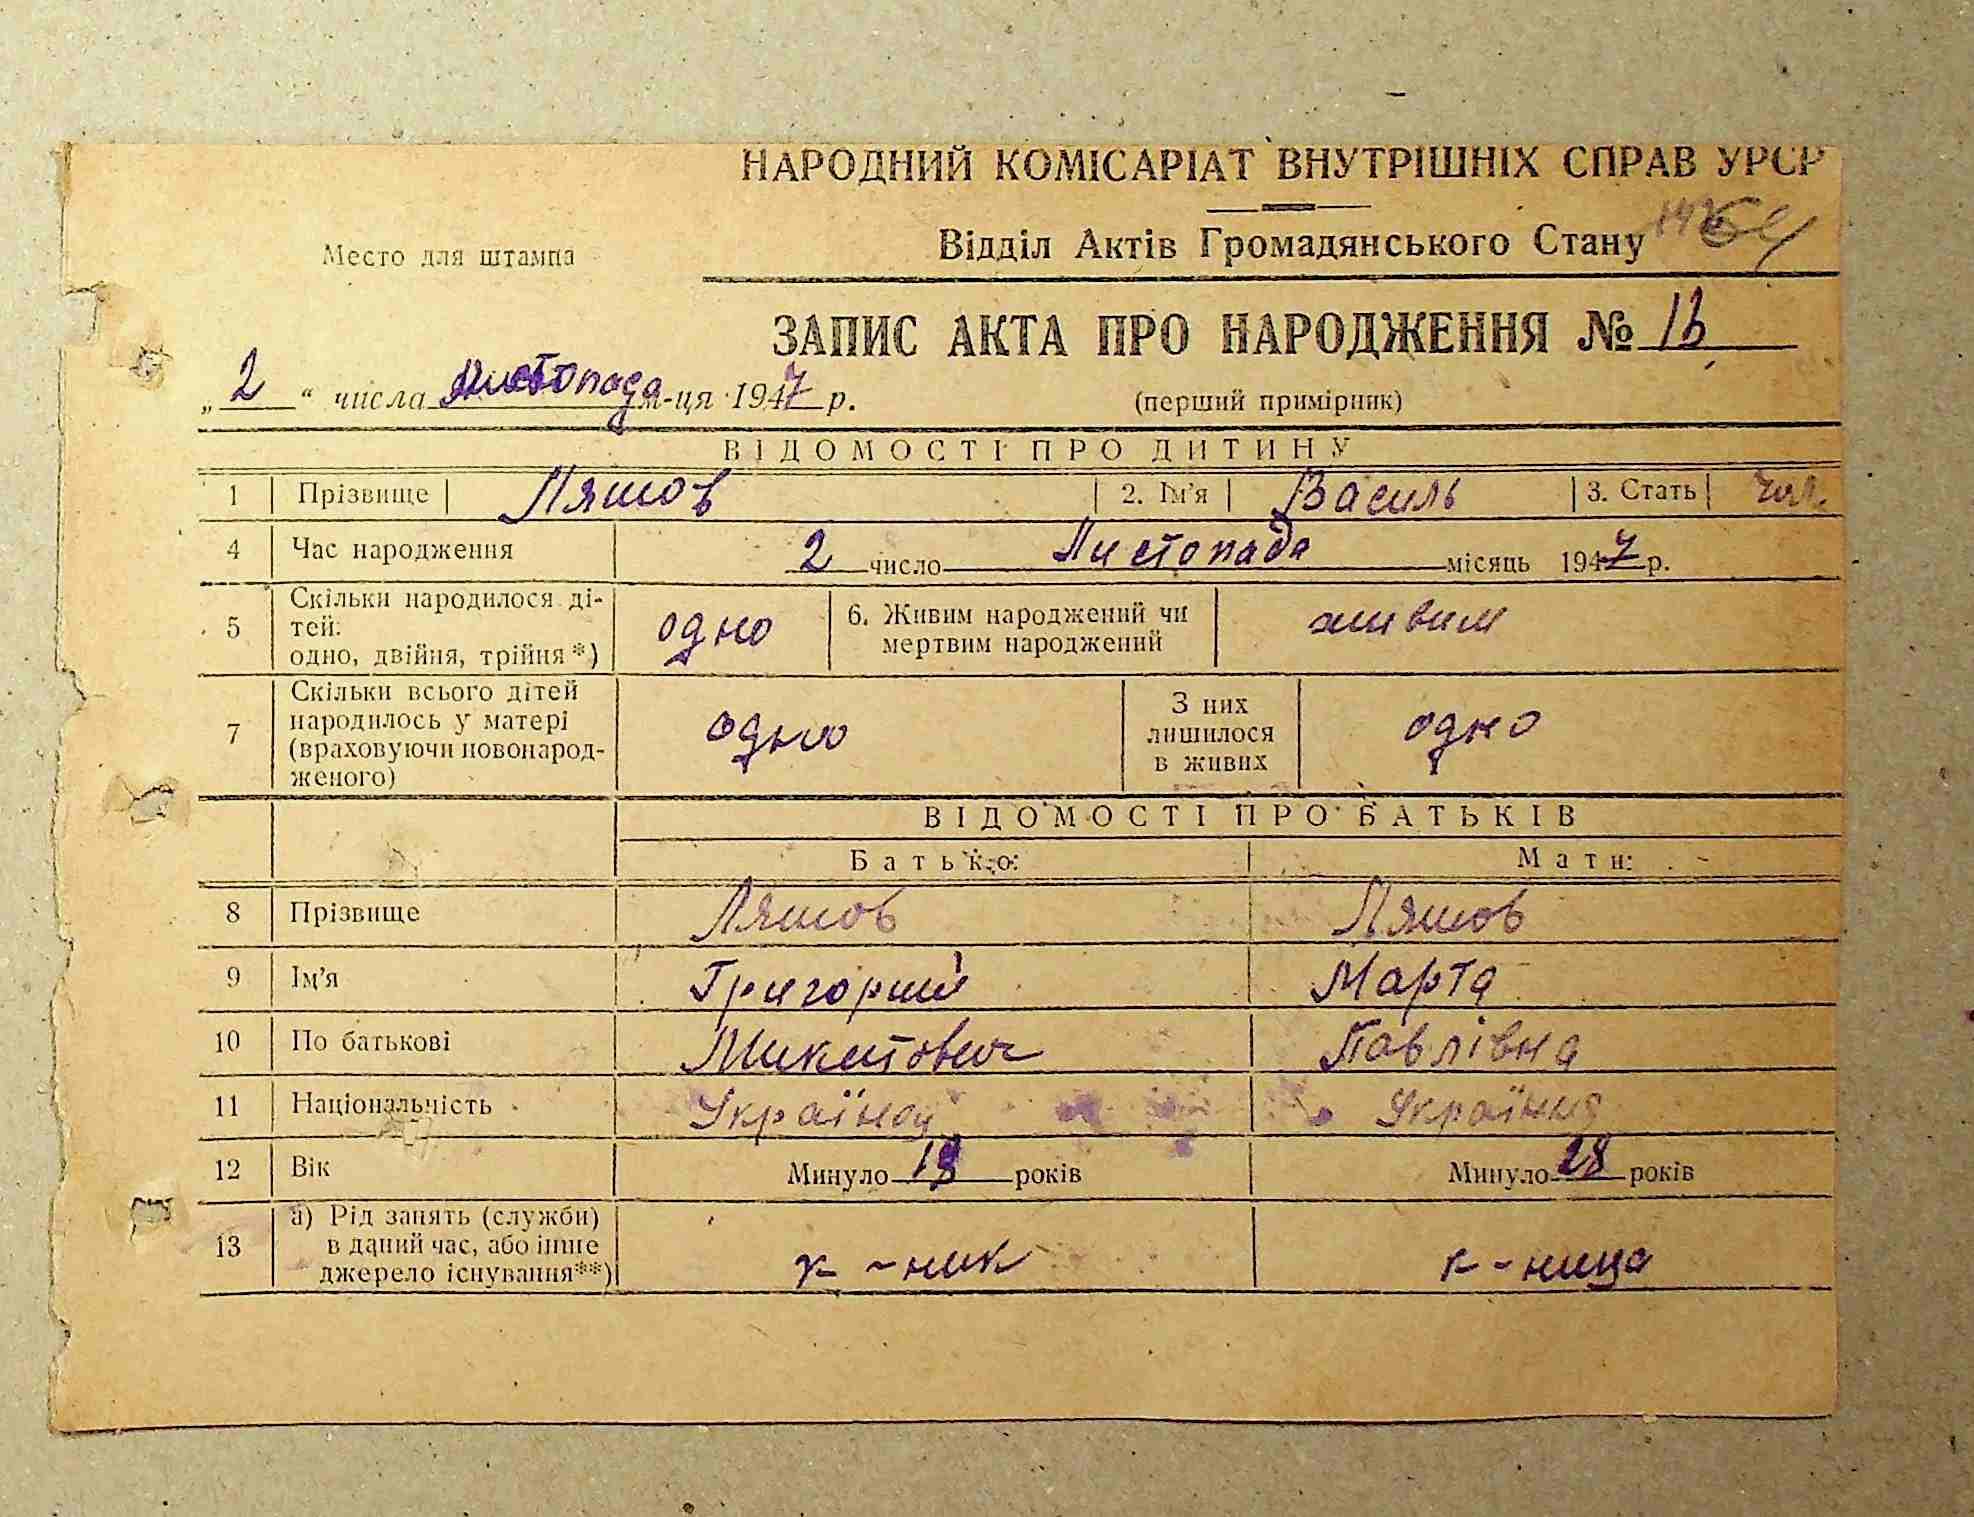 НАРОДНИЙ КОМІСАРІАТ ВНУТРІШНІХ СПРАВ УРСР
Место для штампа
Відділ Актів Громадянського Стану
ЗАПИС АКТА ПРО НАРОДЖЕННЯ №
„2“ числа Листопада м-ця 1947 р.
(перший примірник)
ВІДОМОСТІ ПРО ДИТИНУ
1 Прізвище Ляшов 2. Ім'я Василь 3. Стать чол.
4 Час народження 2 число Листопада місяць 1947 р.
5 Скільки народилося ді-
тей:
одно, двійня, трійня *) одно 6. Живим народжений чи
мертвим народжений живим
7 Скільки всього дітей
народилось у матері
(враховуючи новонарод-
женого) одно З них
лишилося
в живих одно
ВІДОМОСТІ ПРО БАТЬКІВ
Батько: Мати:
8 Прізвище Ляшов Ляшов
9 Ім'я Григорий Марта
10 По батькові Микитович Павлівна
11 Національність Українец Українка
12 Вік Минуло років Минуло 28 років
13 а) Рід занять (служби)
в даний час, або інше
джерело існування**) к-ник к-ница